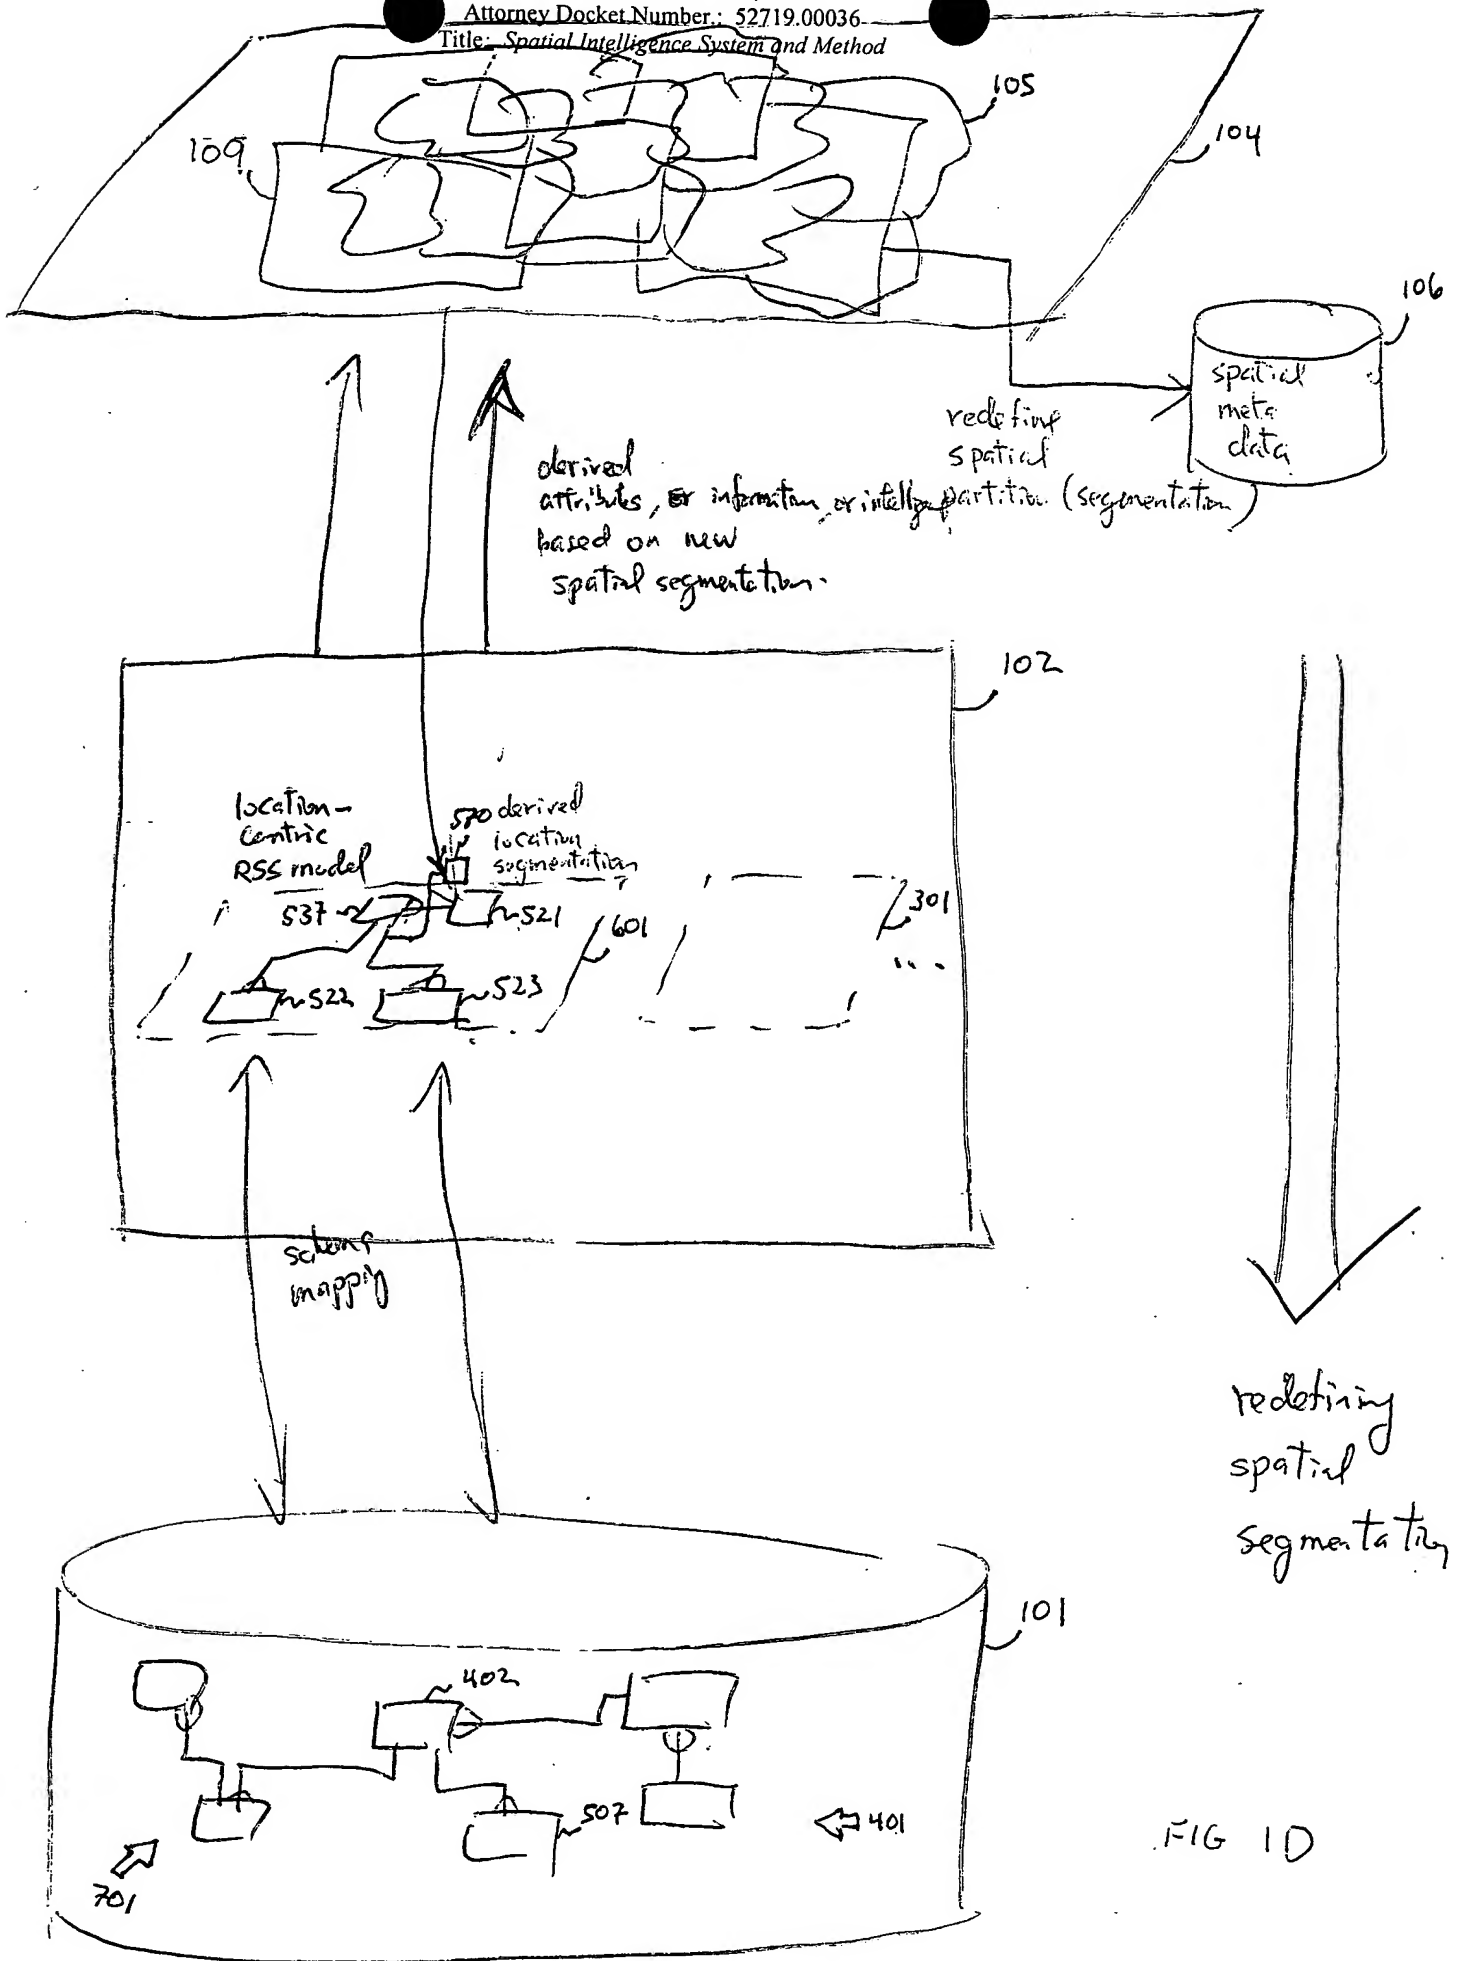 Attorney Docket Number.: 52719.00036
Title: Spatial Intelligence System and Method
105
104
109
106
spatial
meta
data
redefine
spatial
partition (segmentation)
derived
attributes, or information, or
based on new
spatial segmentation.
102
location-
centric
RSS model
520 derived
location
segmentation
537
521
601
301
....
522
523
schema
mapping
redefining
spatial
segmentation
101
402
507
401
701
FIG 1D